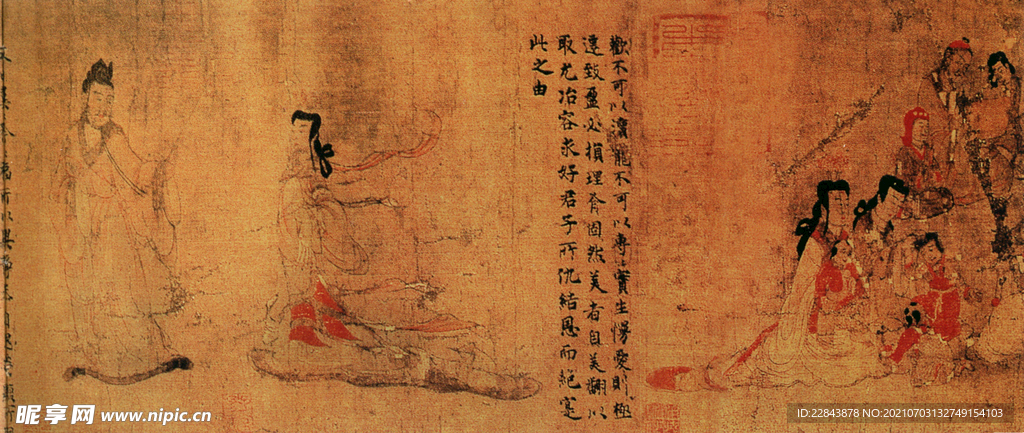 歡不可以瀆寵不可以專實生慢愛則極
遷致盈必損理有固然美者自美翩以
取尤冶容求好君子所仇結恩而絕寔
此之由
昵享网 www.nipic.cn
ID:22843878 NO:20210703132749154103